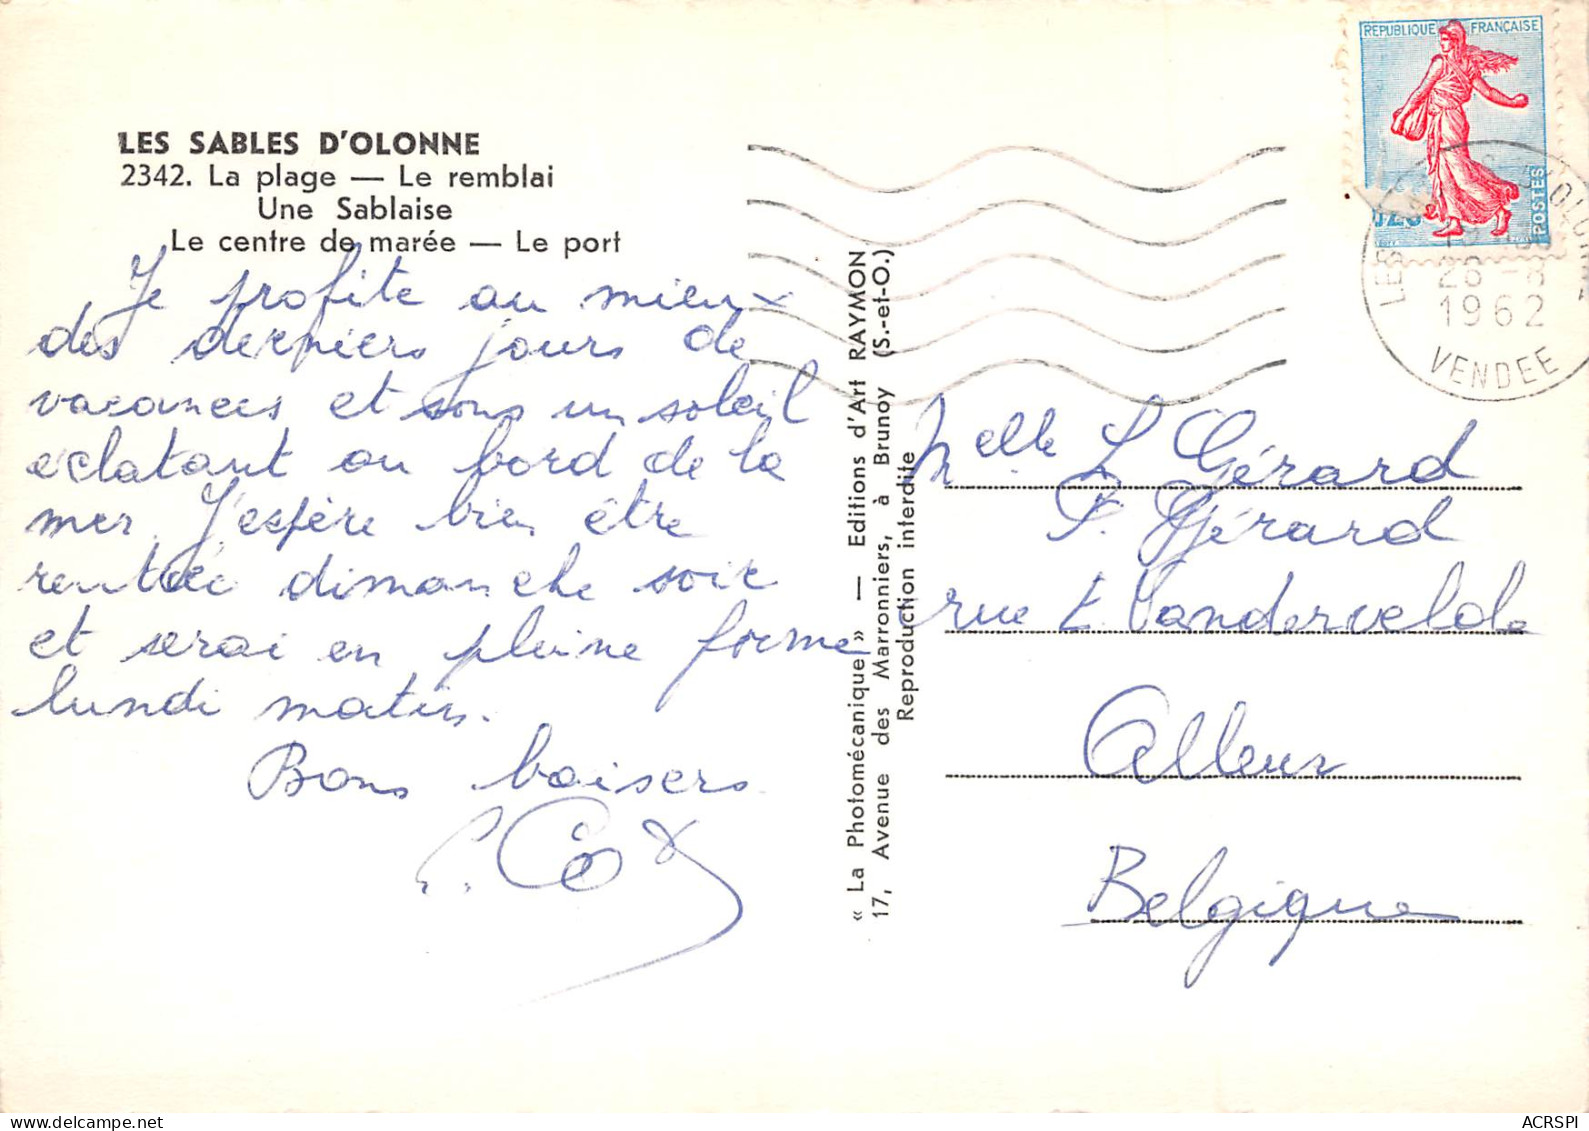 LES SABLES D'OLONNE
2342. La plage — Le remblai
Une Sablaise
Le centre de marée — Le port
Je profite au mieux
des derniers jours de
vacances et sous un soleil
éclatant au bord de la
mer. J'espère bien être
rentrée dimanche soir
et serai en pleine forme
lundi matin.
Bons baisers
« La Photomécanique » — Editions d'Art RAYMON
17, Avenue des Marronniers, à Brunoy (S.-et-O.)
Reproduction interdite
REPUBLIQUE FRANÇAISE
POSTES
LES D'OLONNE
1962
VENDEE
Melle L Gérard
P. Gérard
rue E. Vandervelde
Alleur
Belgique
ACRSPI